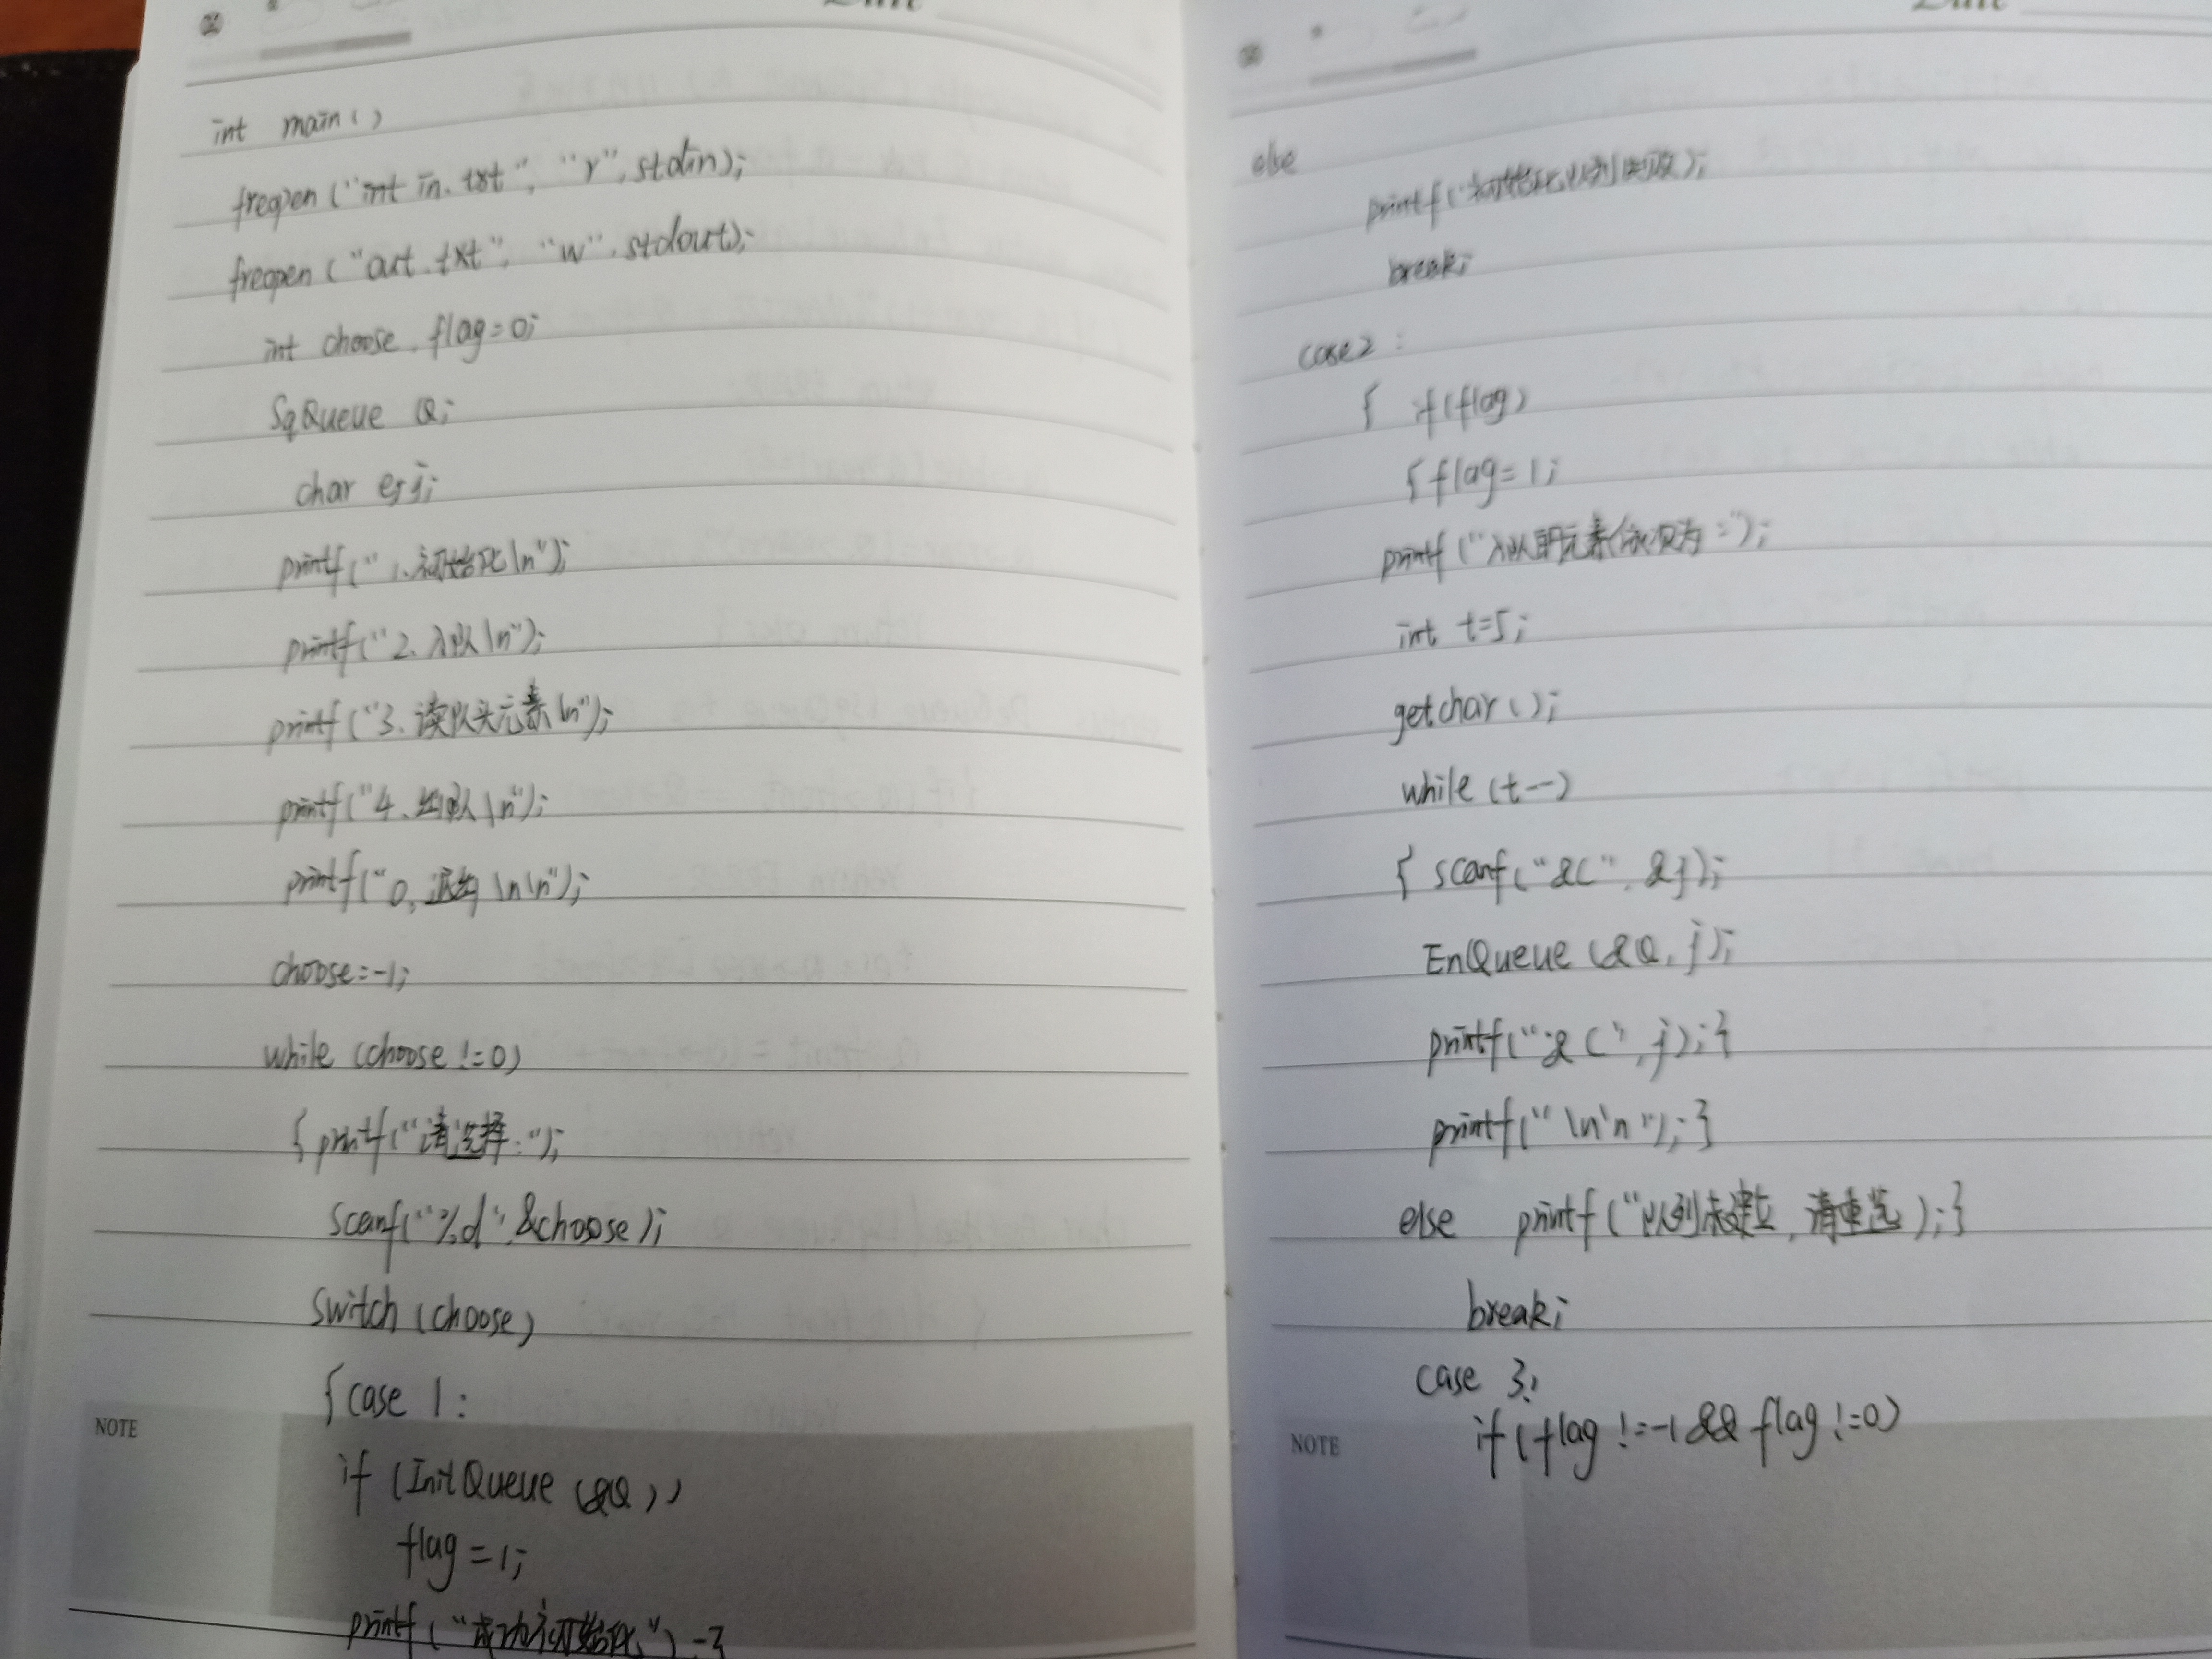 int main()
freopen("int in.txt", "r", stdin);
freopen("out.txt", "w", stdout);
int choose, flag=0;
SqQueue Q;
char e,j;
printf("1、初始化\n");
printf("2、入队\n");
printf("3、读队头元素\n");
printf("4、出队\n");
printf("0、退出\n\n");
choose=-1;
while (choose !=0)
{ printf("请选择:");
scanf("%d",&choose);
switch (choose)
{ case 1:
if (InitQueue (&Q))
flag=1;
printf("成功初始化")
NOTE
else
printf("初始化队列失败);
break;
case2 :
{ if(flag)
{ flag=1;
printf("入队的元素依次为:");
int t=5;
getchar();
while (t--)
{ scanf("&c", &j);
EnQueue (&Q, j);
printf("&c", j);}
printf("\n\n");}
else printf("队列未建立,请重选);}
break;
case 3:
if (flag !=-1 && flag !=0)
NOTE